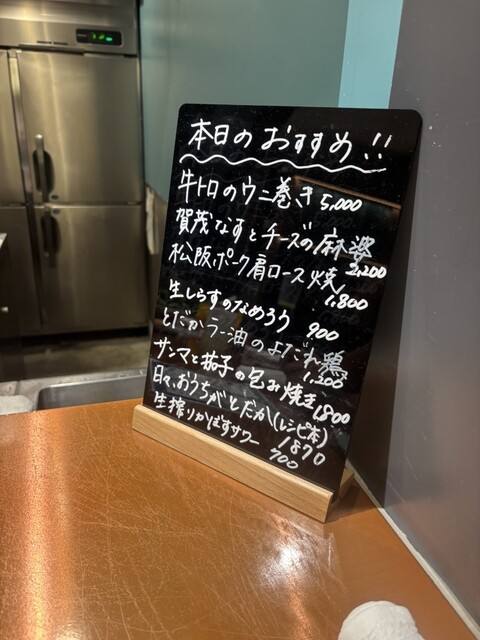 本日のおすすめ!!
牛トロのウニ巻き 5,000
賀茂なすとチーズの麻婆 2,200
松阪ポーク肩ロース焼 1,800
生しらすのなめろう 900
とだかラー油のよだれ鶏 1,200
サンマと茄子の包み焼き 1,800
日々、おうちがとだか(レシピ本) 1870
生搾りかぼすサワー 700